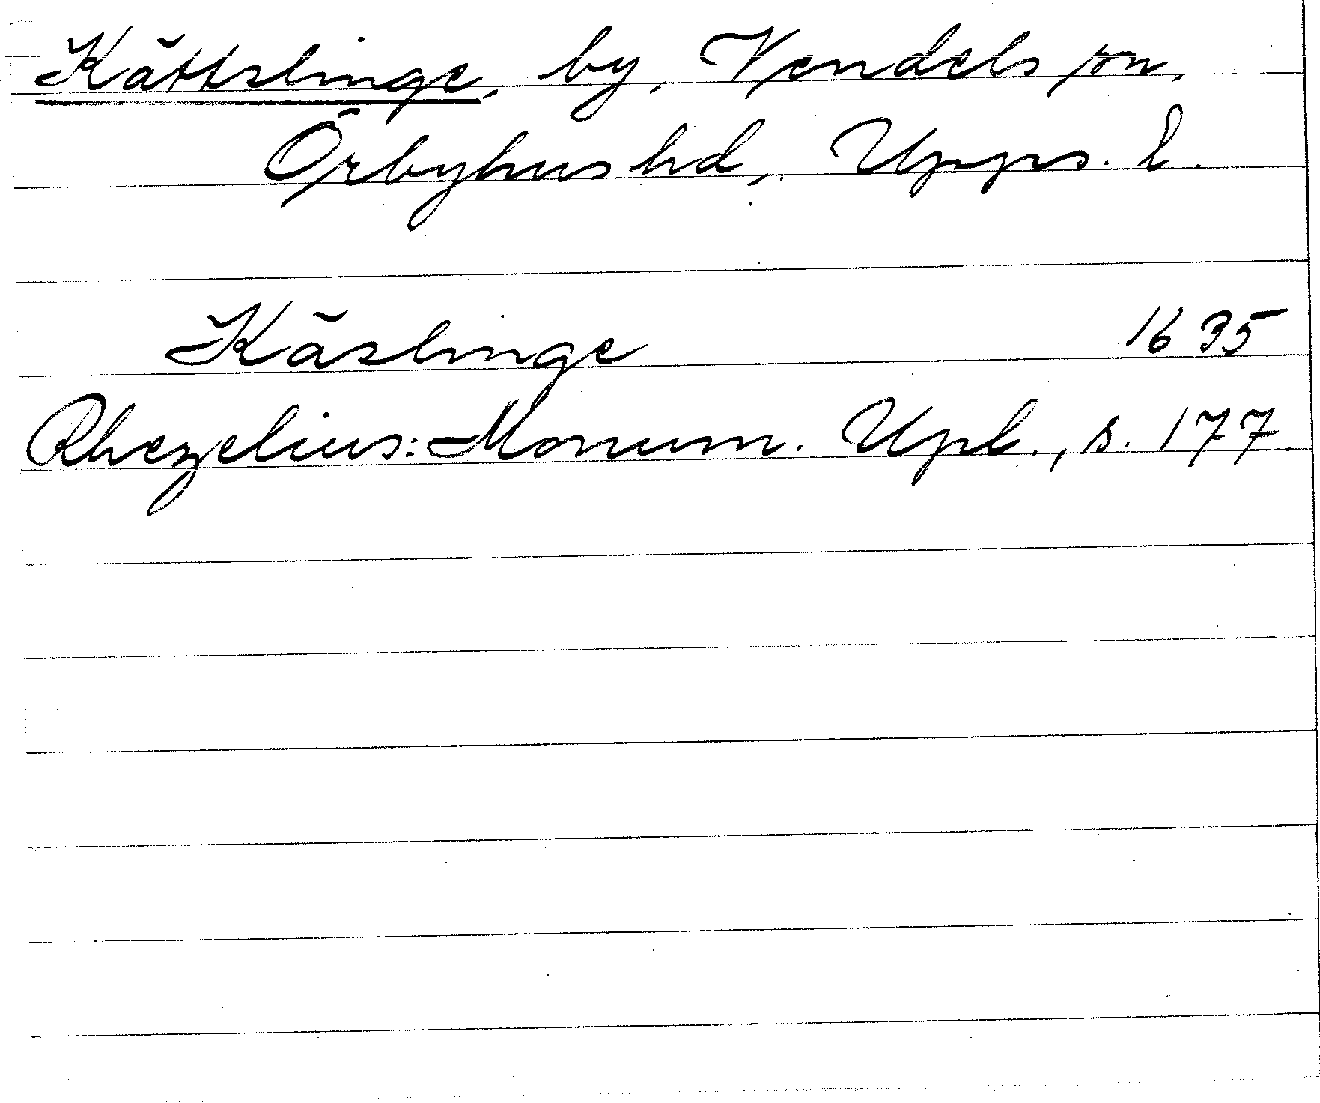 Kättslinge, by, Vendels sn,
Örbyhus hd, Upps. l.
Käslinge 1635
Rhezelius: Monum. Upl., s. 177.